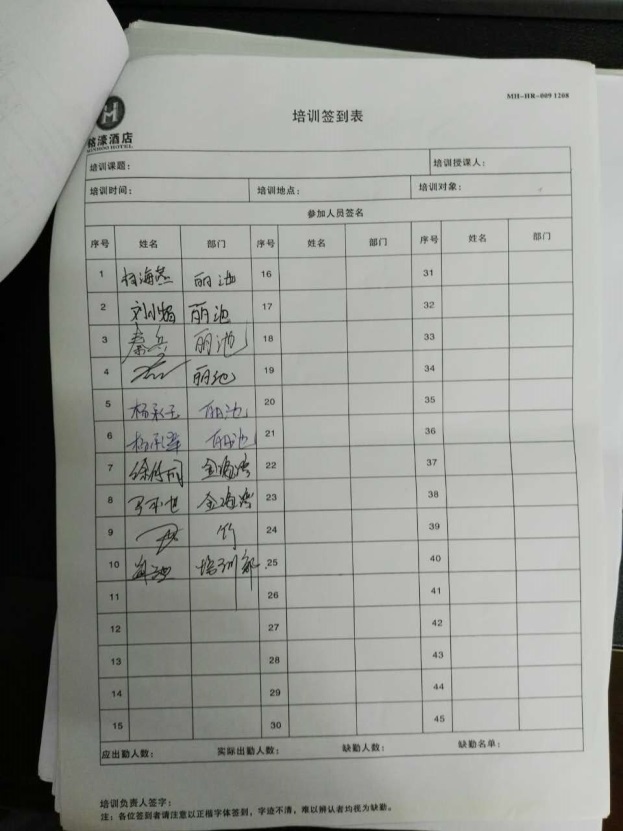 MH-HR-009 1208
H
铭濠酒店
培训签到表
培训课题： 培训授课人：
培训时间： 培训地点： 培训对象：
参加人员签名
序号 姓名 部门 序号 姓名 部门 序号 姓名 部门
1 丽池 16 31
2 丽池 17 32
3 秦兵 丽池 18 33
4 丽池 19 34
5 丽池 20 35
6 丽池 21 36
7 金海湾 22 37
8 金海湾 23 38
9 竹 24 39
10 培训部 25 40
11 26 41
12 27 42
13 28 43
14 29 44
15 30 45
应出勤人数： 实际出勤人数： 缺勤人数： 缺勤名单：
培训负责人签字：
注：各位签到者请注意以正楷字体签到，字迹不清，难以辨认者均视为缺勤。